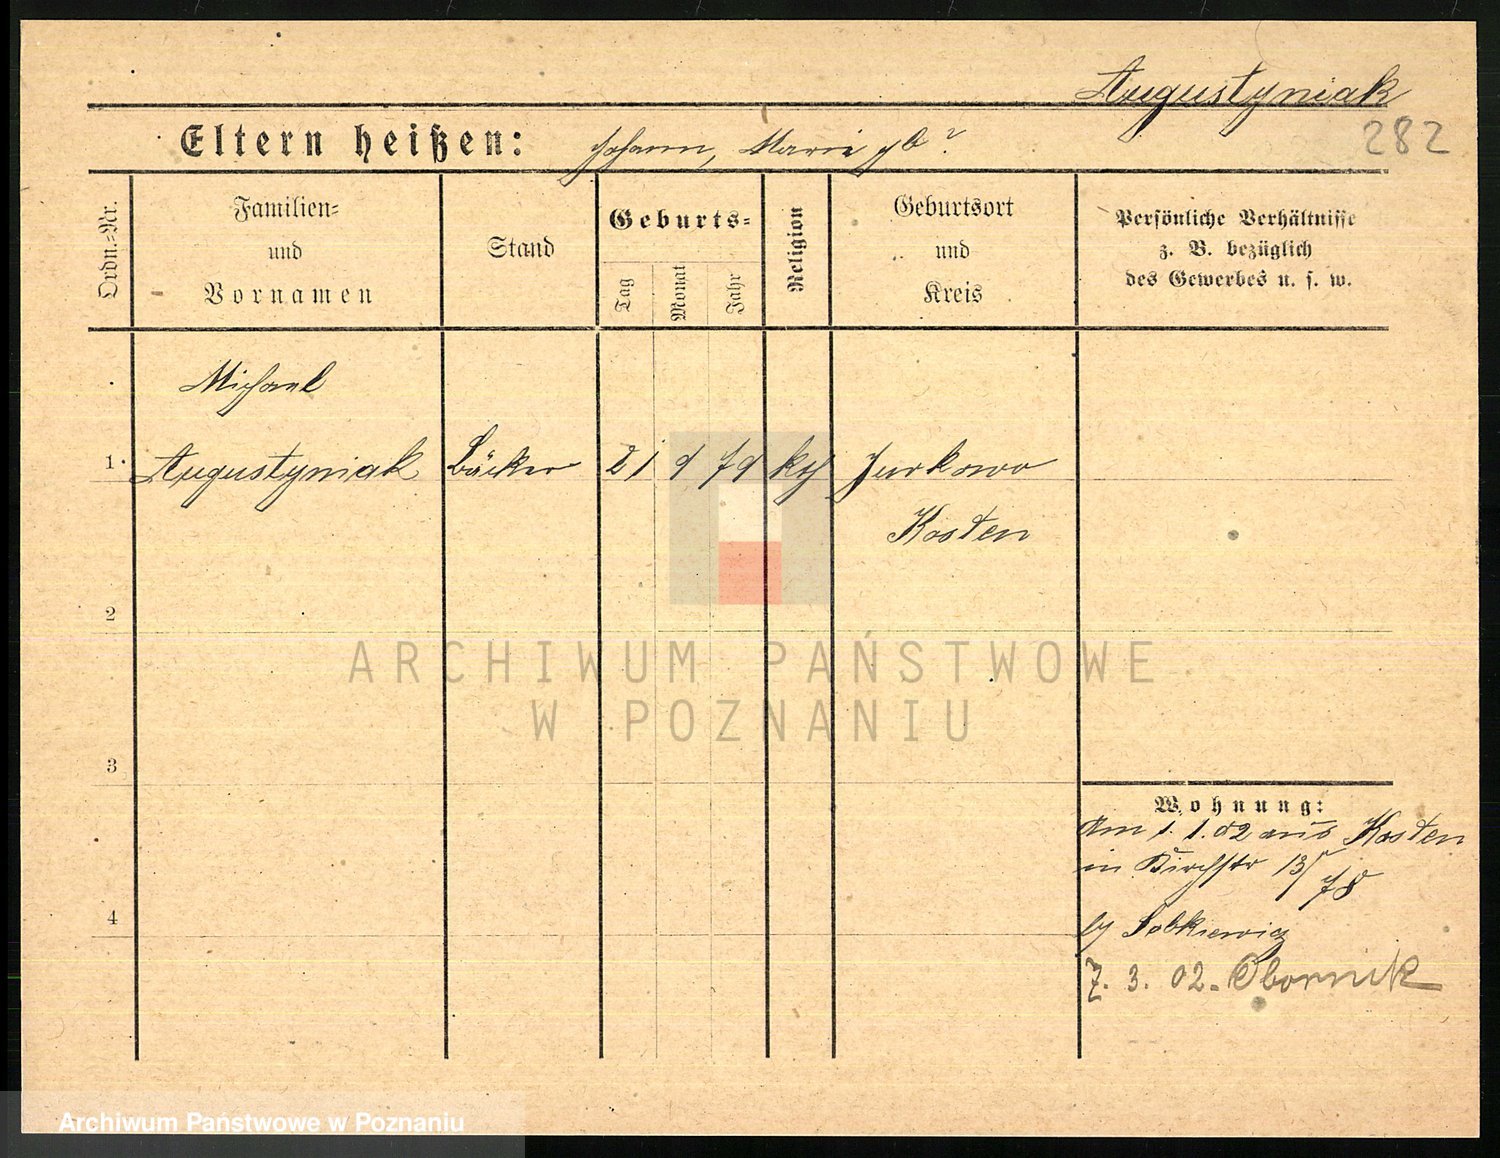 Augustyniak
282
Eltern heißen: Johann, Marie gb ?
Ordn.-Nr.
Familien-
und
Vornamen
Stand
Geburts-
Tag
Monat
Jahr
Religion
Geburtsort
und
Kreis
Persönliche Verhältnisse
z. B. bezüglich
des Gewerbes u. s. w.
Michael
1. Augustyniak Bäcker 21 9 79 kth Jurkowo
Kosten
2
3
4
Wohnung:
Am 1. 1. 02 aus Kosten
in Kirchstr 13/
78
by Sobkiewicz
7. 3. 02. Obornik
ARCHIWUM PAŃSTWOWE
W POZNANIU
Archiwum Państwowe w Poznaniu